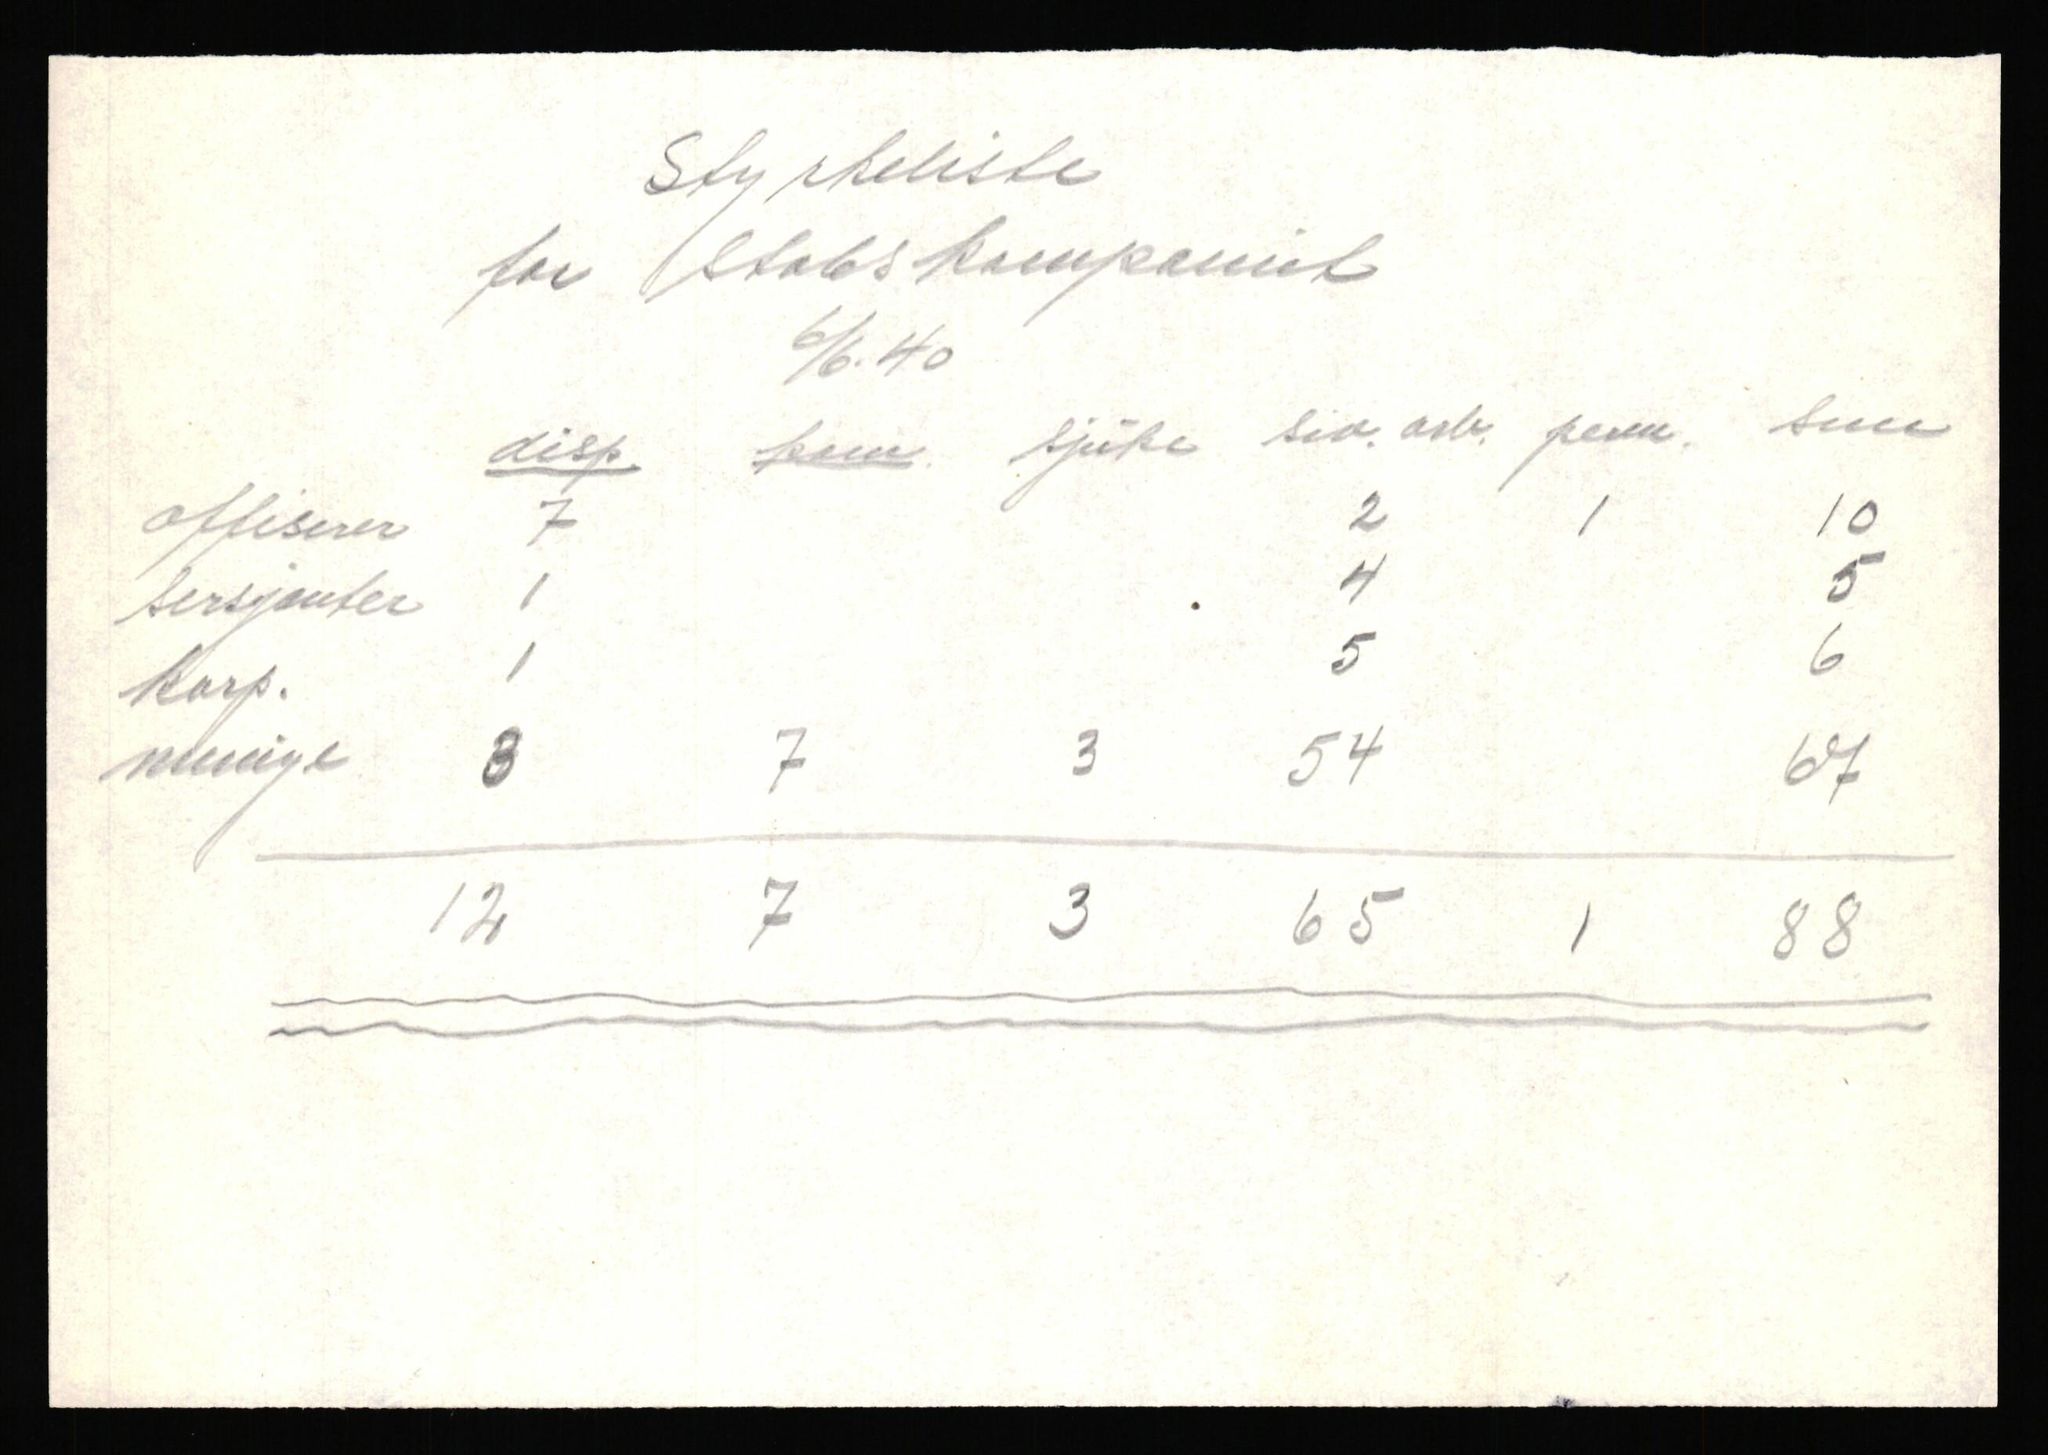 Styrkeliste
for Stabskompaniet
6/6.40
disp. kom. sjuke siv. arb. perm. Sum
offiserer 7 2 1 10
sersjanter 1 4 5
korp. 1 5 6
menige 3 7 3 54 67
12 7 3 65 1 88